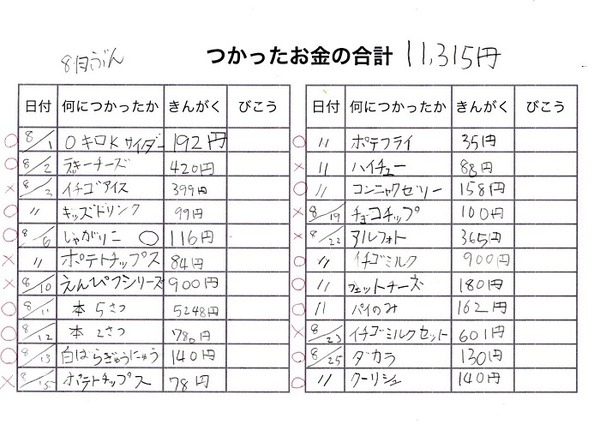 8月ぶん
つかったお金の合計 11,315円
日付 何につかったか きんがく びこう
○ 8/1 0キロKサイダー 192円
○ 8/2 ラッキーチーズ 420円
× 8/3 イチゴアイス 399円
○ 〃 キッズドリンク 99円
○ 8/6 じゃがりこ ○ 116円
× 〃 ポテトチップス 84円
× 8/10 えんぴつシリーズ 900円
○ 8/11 本5さつ 5248円
○ 8/12 本2さつ 780円
○ 8/13 白ばらぎゅうにゅう 140円
× 8/15 ポテトチップス 78円
日付 何につかったか きんがく びこう
○ 〃 ポテフライ 35円
× 〃 ハイチュー 88円
○ 〃 コンニャクゼリー 158円
× 8/19 チョコチップ 100円
× 8/22 アルフォト 365円
○ 〃 イチゴミルク 900円
○ 〃 フェットチーズ 180円
○ 〃 パイのみ 162円
× 8/23 イチゴミルクセット 601円
○ 8/25 ダカラ 130円
○ 〃 クーリシュ 140円